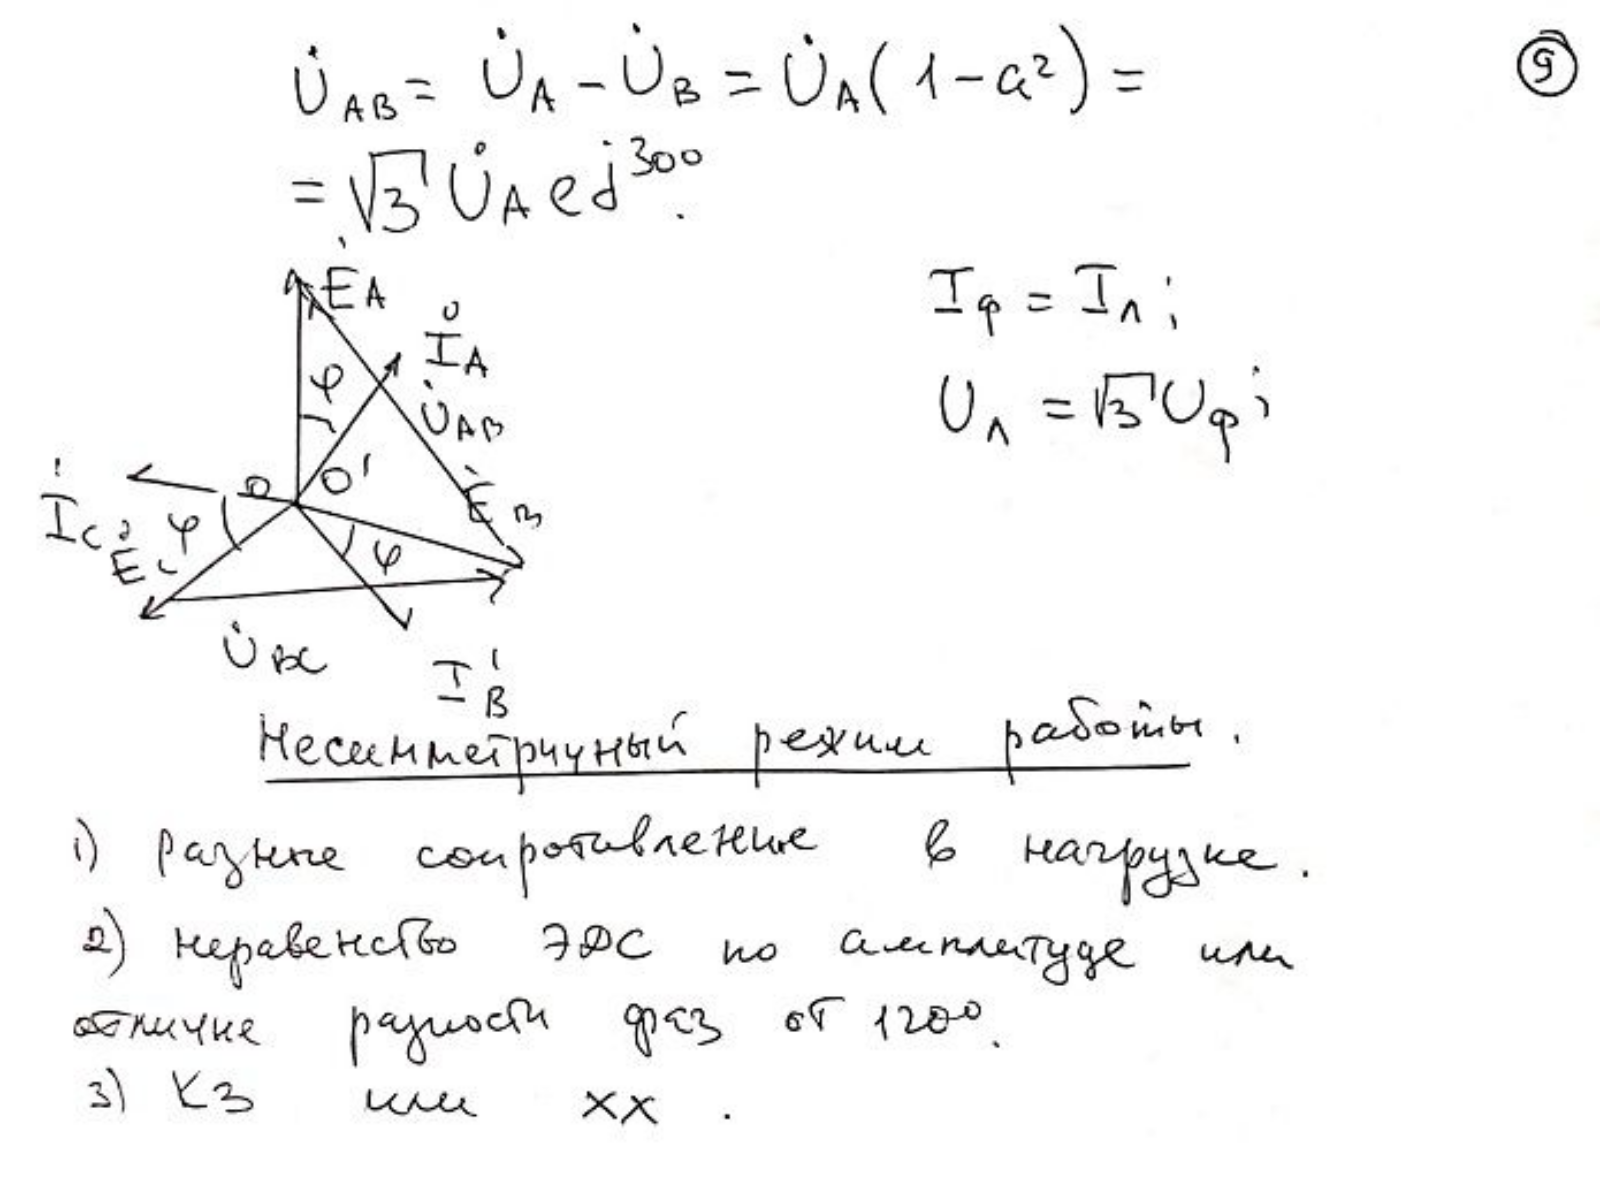 U̇AB = U̇A - U̇B = U̇A(1 - a²) =
⑤
= √3 U̇A e j30⁰.
ĖA
İA
Iф = Iл;
φ
U̇AB
Uл = √3 Uф;
0 0'
ĖB
İC
φ
ĖC
φ
U̇BC
İB
Несимметричный режим работы.
1) Разные сопротивление в нагрузке.
2) неравенство ЭДС по амплитуде или
отличие разности фаз от 120⁰.
3) КЗ или хх.